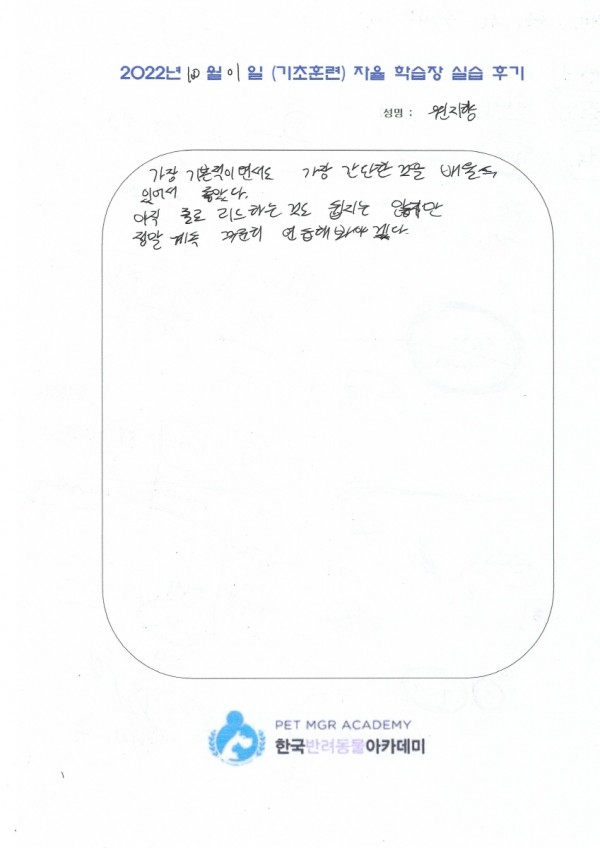 2022년 10 월 01 일 (기초훈련) 자율 학습장 실습 후기
성명 : 원지향
가장 기본적이면서도 가장 간단한 것을 배울 수
있어서 좋았다.
아직 줄로 리드하는 것도 쉽지는 않지만
정말 계속 꾸준히 연습해봐야겠다.
PET MGR ACADEMY
한국반려동물아카데미